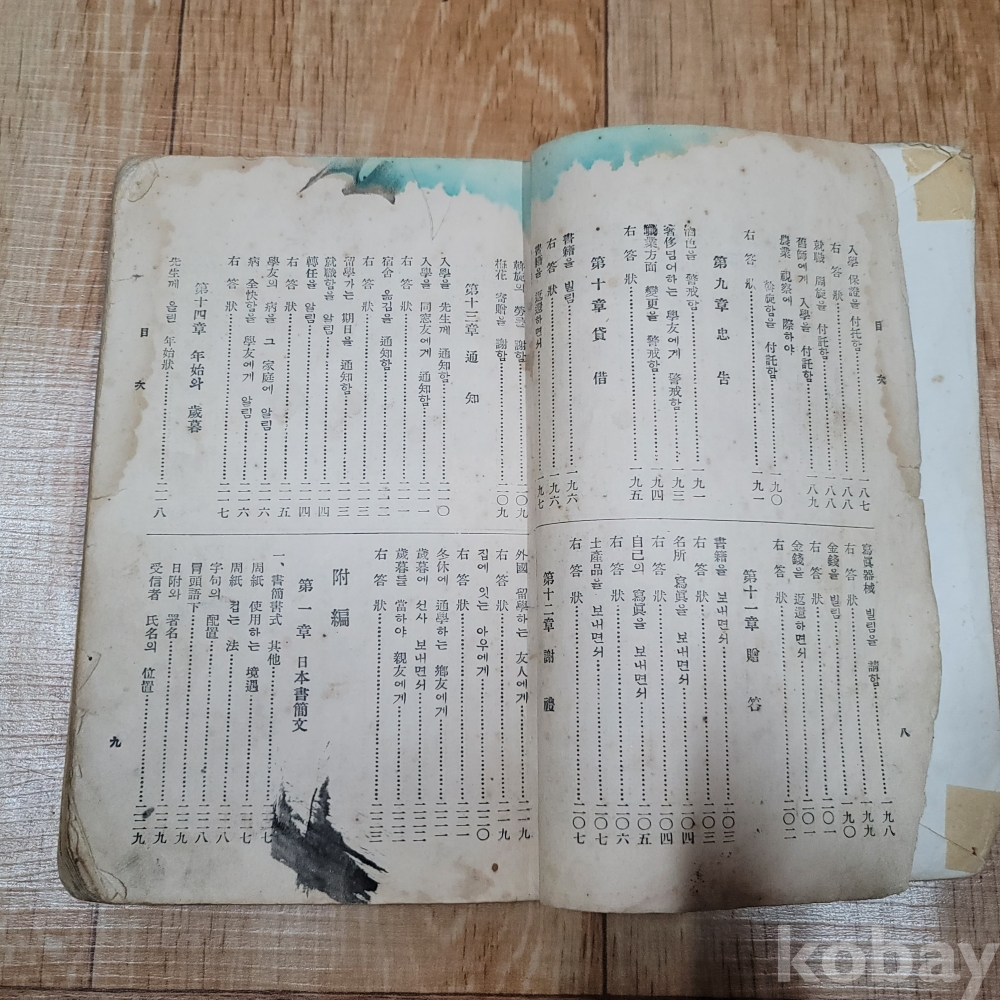 目次
入學 保證을 付託함……一八七
右答狀……一八八
就職 周旋을 付託함……一八八
舊師에게 入學을 付託함……一八九
農業 視察에 際하야
斡旋함을 付託함……一九〇
右答狀……一九一
第九章 忠告
酒色을 警戒함……一九一
奢侈넘어하는 學友에게 警戒함……一九三
職業方面 變更을 警戒함……一九四
右答狀……一九五
第十章 貸借
書籍을 빌림……一九六
右答狀……一九六
書籍을 返還하면서……一九七
寫眞器械 빌림을 請함……一九八
右答狀……一九九
金錢을 빌림……一九〇
右答狀……二〇一
金錢을 返還하면서……二〇一
右答狀……二〇二
第十一章 贈答
書籍을 보내면서……二〇三
右答狀……二〇三
名所 寫眞을 보내면서……二〇四
右答狀……二〇四
自己의 寫眞을 보내면서……二〇五
右答狀……二〇六
土產品을 보내면서……二〇七
右答狀……二〇七
第十二章 謝禮
八
斡旋의 勞를 謝함……二〇九
梅花 寄贈을 謝함……二〇九
第十三章 通知
入學을 先生께 通知함……二一〇
入學을 同窓友에게 通知함……二一一
右答狀……二一一
宿舍 옮김을 通知함……二一二
右答狀……二一三
留學가는 期日을 通知함……二一三
就職함을 알림……二一四
轉任을 알림……二一四
右答狀……二一五
學友의 病을 그 家庭에 알림……二一六
病 全快함을 學友에게 알림……二一六
右答狀……二一七
第十四章 年始와 歲暮
先生께 올린 年始狀……二一八
目次
外國 留學하는 友人에게……二一九
右答狀……二一九
집에 잇는 아우에게……二二〇
右答狀……二二一
冬休에 通學하는 鄕友에게……二二一
歲暮에 선사 보내면서……二二二
歲暮를 當하야 親友에게……二二二
右答狀……二二三
附編
第一章 日本書簡文
一、書簡書式 其他……二二七
周紙 使用하는 境遇……二二七
周紙 접는 法……二二七
字句의 配置……二二八
冒頭語下……二二八
日附와 署名……二二九
受信者 氏名의 位置……二二九
九
kobay